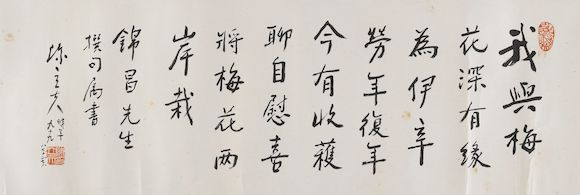 我與梅
花深有緣
為伊辛
勞年復年
今有收穫
聊自慰喜
將梅花两
岸栽
錦昌先生
撰句属書
陳立夫
時年九十九